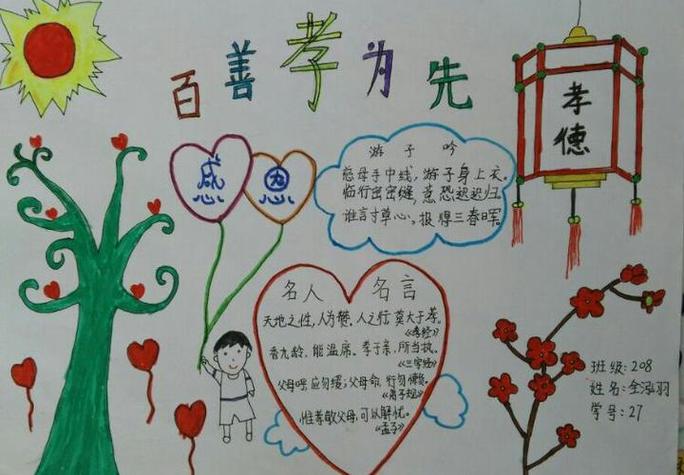 百善孝为先
孝德
感恩
游子吟
慈母手中线，游子身上衣。
临行密密缝，意恐迟迟归
谁言寸草心，报得三春晖。
名人名言
天地之性，人为贵，人之行，莫大于孝。
《孝经》
香九龄，能温席。孝于亲，所当执。
《三字经》
父母呼，应勿缓；父母命，行勿懒。
《弟子规》
惟孝敬父母，可以解忧。
《孟子》
班级：208
姓名：金泓羽
学号：27